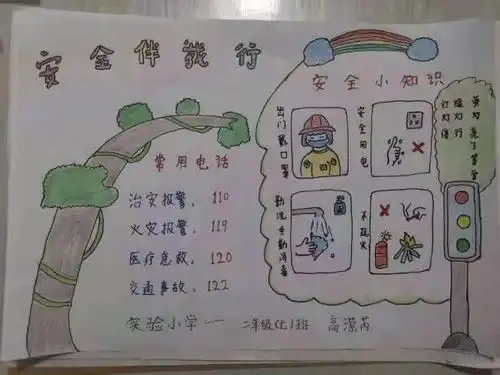 安全伴我行
安全小知识
出门戴口罩
安全用电
勤洗手勤消毒
不玩火
常用电话
治安报警：110
火灾报警：119
医疗急救：120
交通事故：122
实验小学一 二年级(七)班
红灯停
绿灯行
黄灯亮了等一等